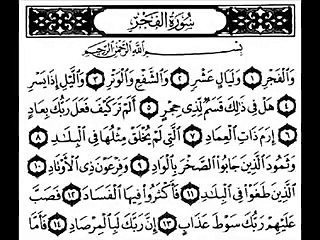 سُورَةُ الْفَجْرِ
بِسْمِ اللَّهِ الرَّحْمَٰنِ الرَّحِيمِ
وَالْفَجْرِ ١ وَلَيَالٍ عَشْرٍ ٢ وَالشَّفْعِ وَالْوَتْرِ ٣ وَاللَّيْلِ إِذَا يَسْرِ
٤ هَلْ فِي ذَٰلِكَ قَسَمٌ لِّذِي حِجْرٍ ٥ أَلَمْ تَرَ كَيْفَ فَعَلَ رَبُّكَ بِعَادٍ
٦ إِرَمَ ذَاتِ الْعِمَادِ ٧ الَّتِي لَمْ يُخْلَقْ مِثْلُهَا فِي الْبِلَٰدِ ٨
وَثَمُودَ الَّذِينَ جَابُوا الصَّخْرَ بِالْوَادِ ٩ وَفِرْعَوْنَ ذِي الْأَوْتَادِ ١٠
الَّذِينَ طَغَوْا فِي الْبِلَٰدِ ١١ فَأَكْثَرُوا فِيهَا الْفَسَادَ ١٢ فَصَبَّ
عَلَيْهِمْ رَبُّكَ سَوْطَ عَذَابٍ ١٣ إِنَّ رَبَّكَ لَبِالْمِرْصَادِ ١٤ فَأَمَّا